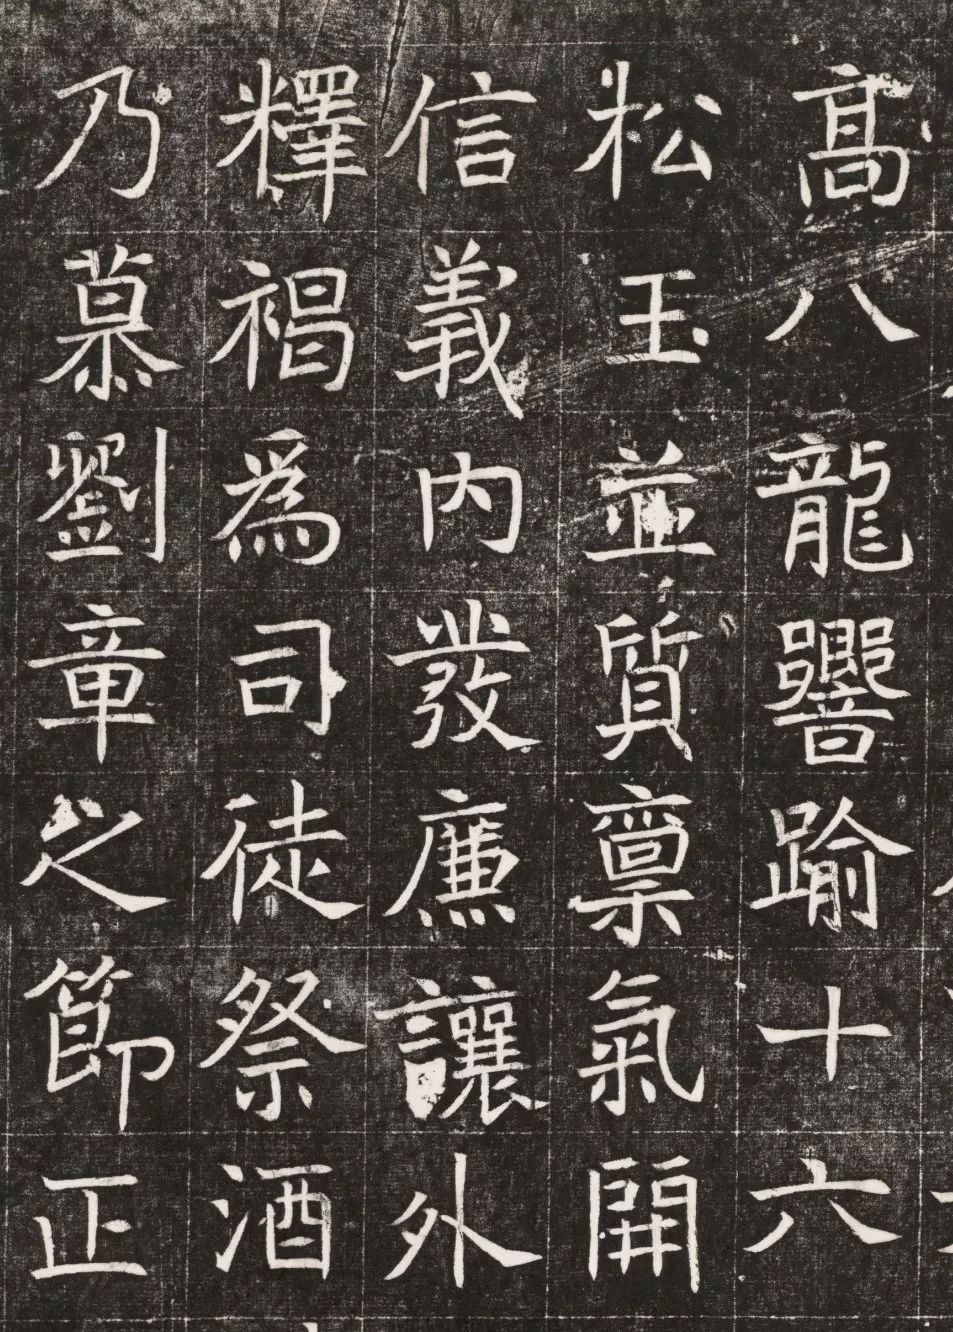 高八龍響踰十六
松玉並質禀氣開
信義內發廉讓外
釋褐爲司徒祭酒
乃慕劉章之節正